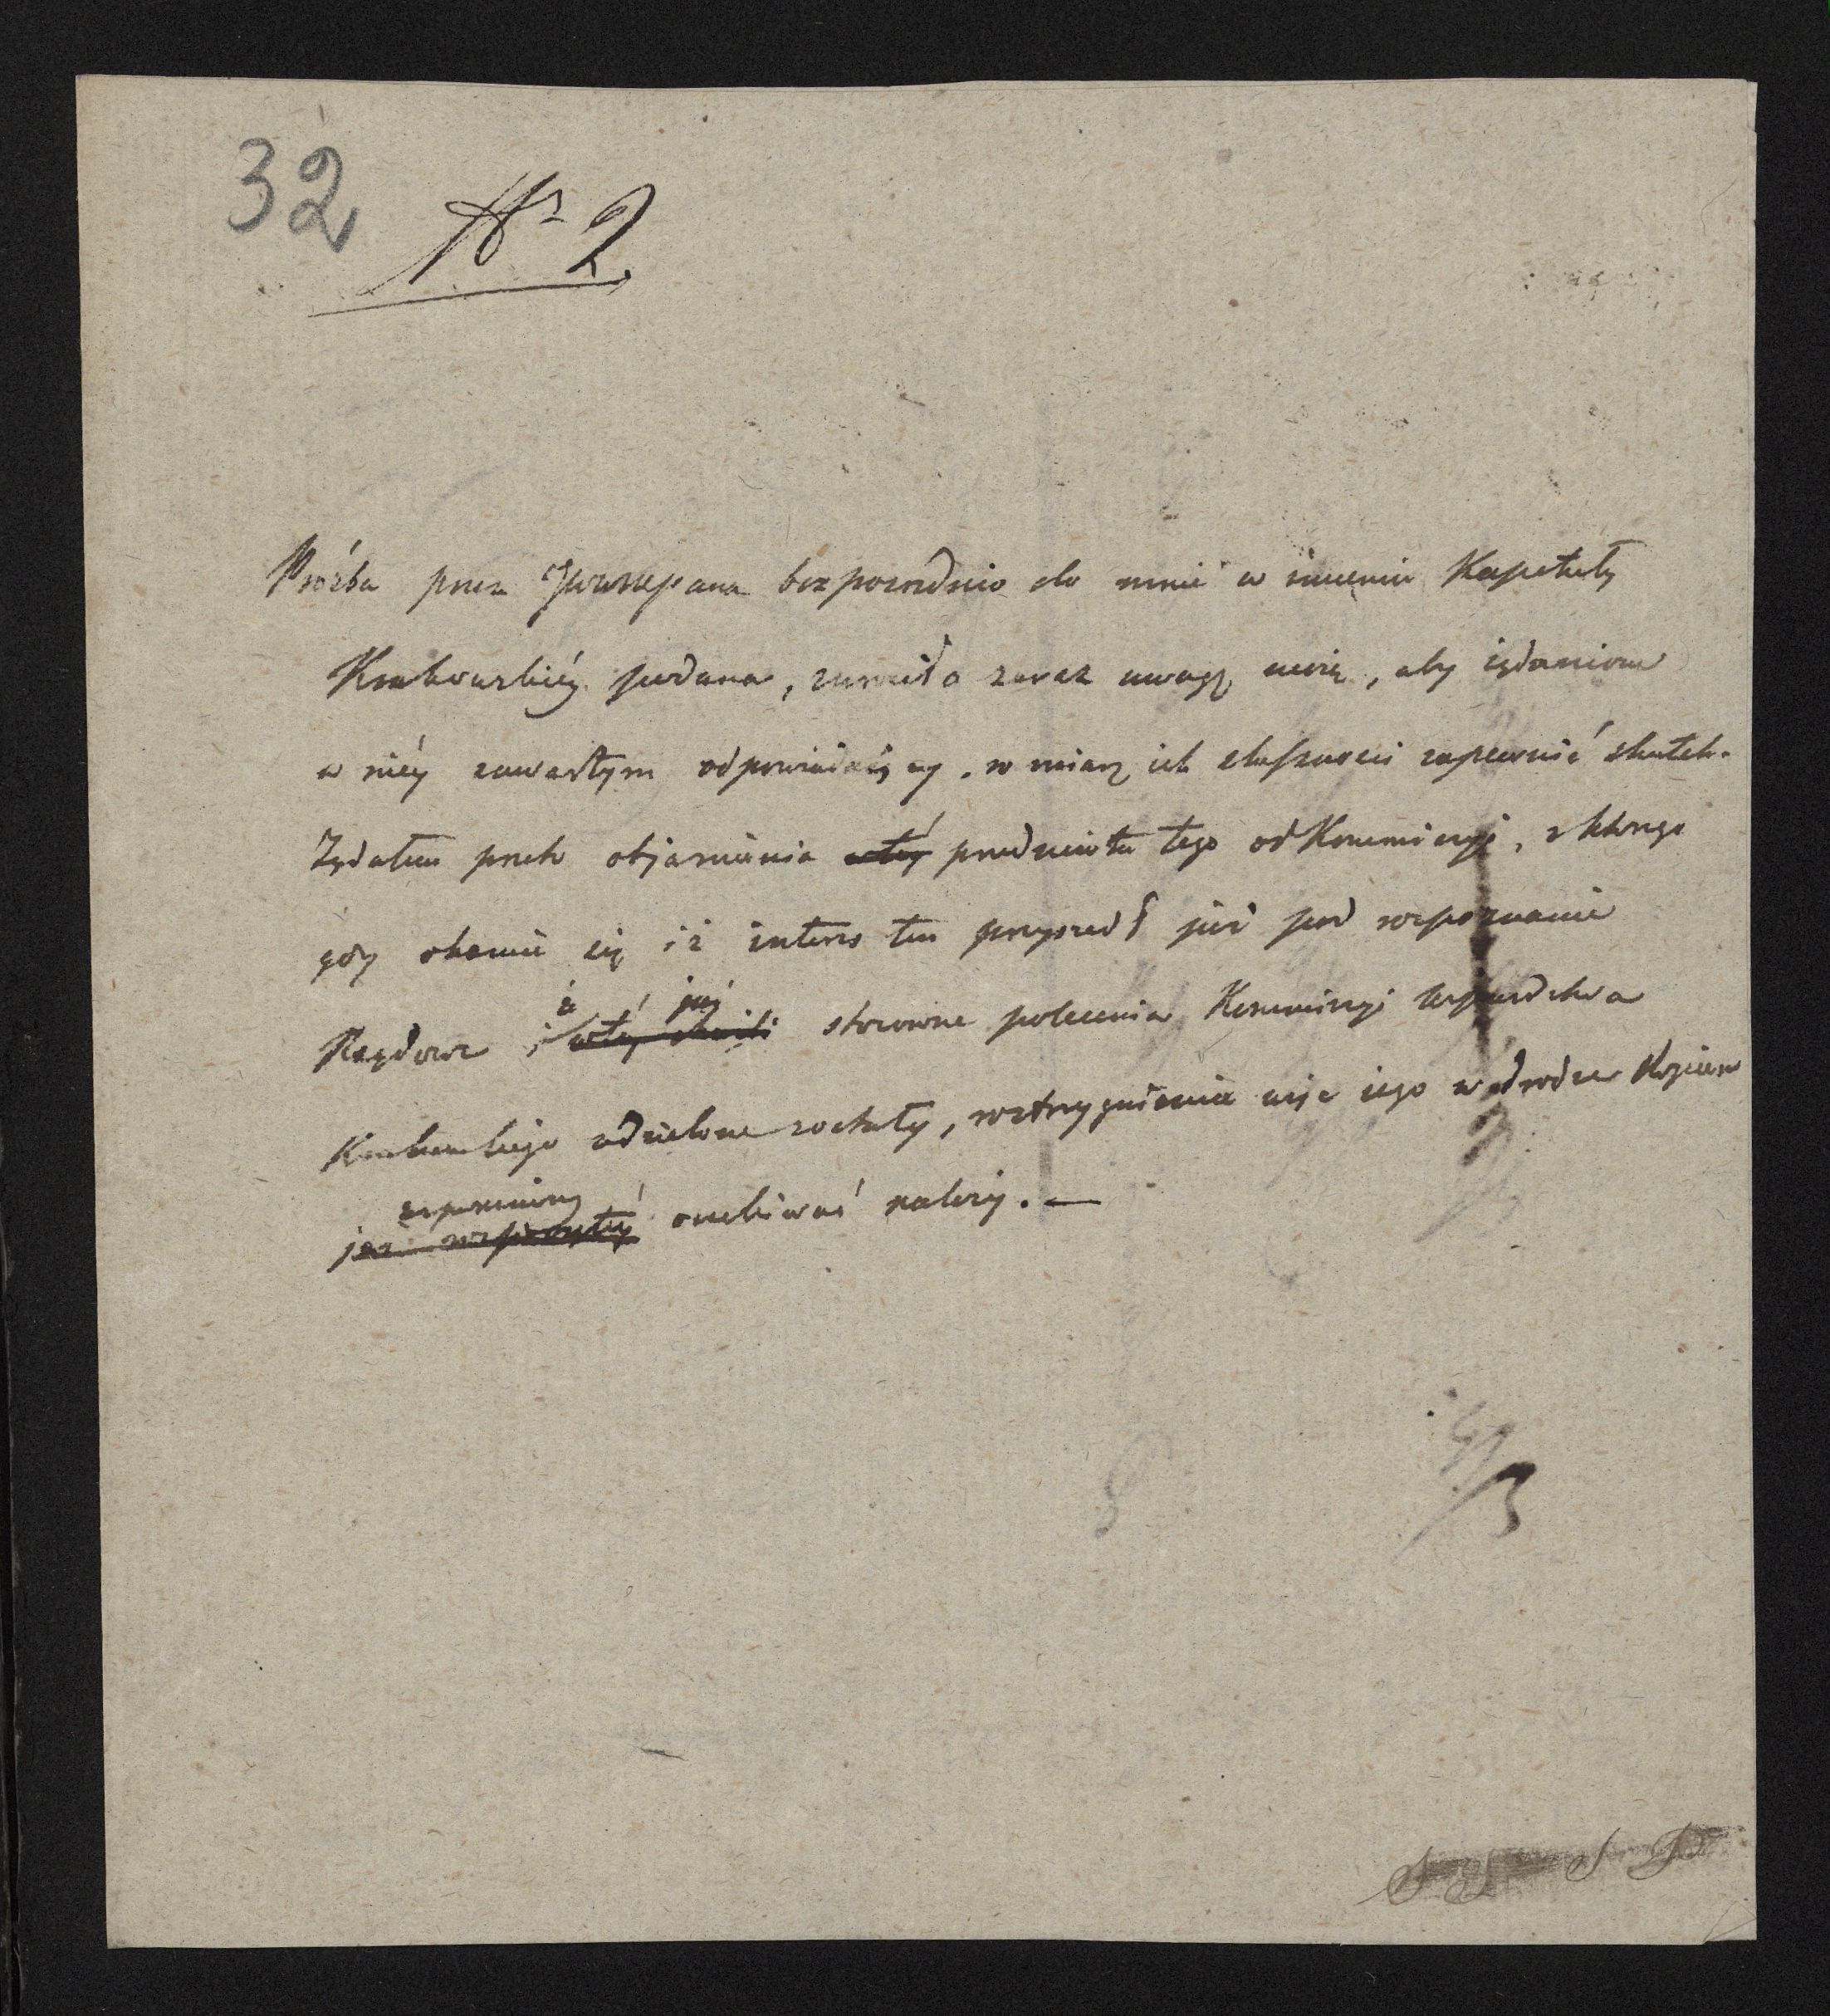 32
Nro 2.
Prośba przez JWWMPana bezpośrednio do mnie w imieniu Kapituły
Krakowskiéy podana, zwróciła zaraz uwagę moię, aby żądaniom
w niéy zawartym odpowiadaiący, w miarę ich słuszności zapewnić skutek.
Żądałem przeto objaśnienia w téy przedmiotu tego od Kommissyi, z którego
gdy okazuie się iż interes ten przyszedł już pod rozpoznanie
Rządowe i że już w téy chwili stosowne polecenia Kommissyi Województwa
Krakowskiego udzielone zostały, roztrzygnienia więc iego w drodze
oczekiwać należy. —